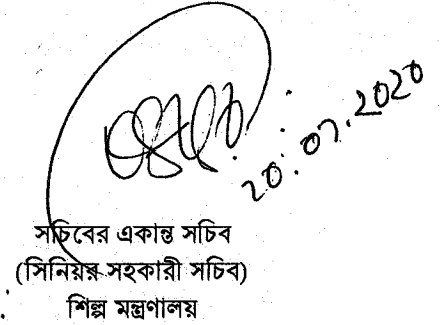 20.07.2020
সচিবের একান্ত সচিব
(সিনিয়র সহকারী সচিব)
শিল্প মন্ত্রণালয়